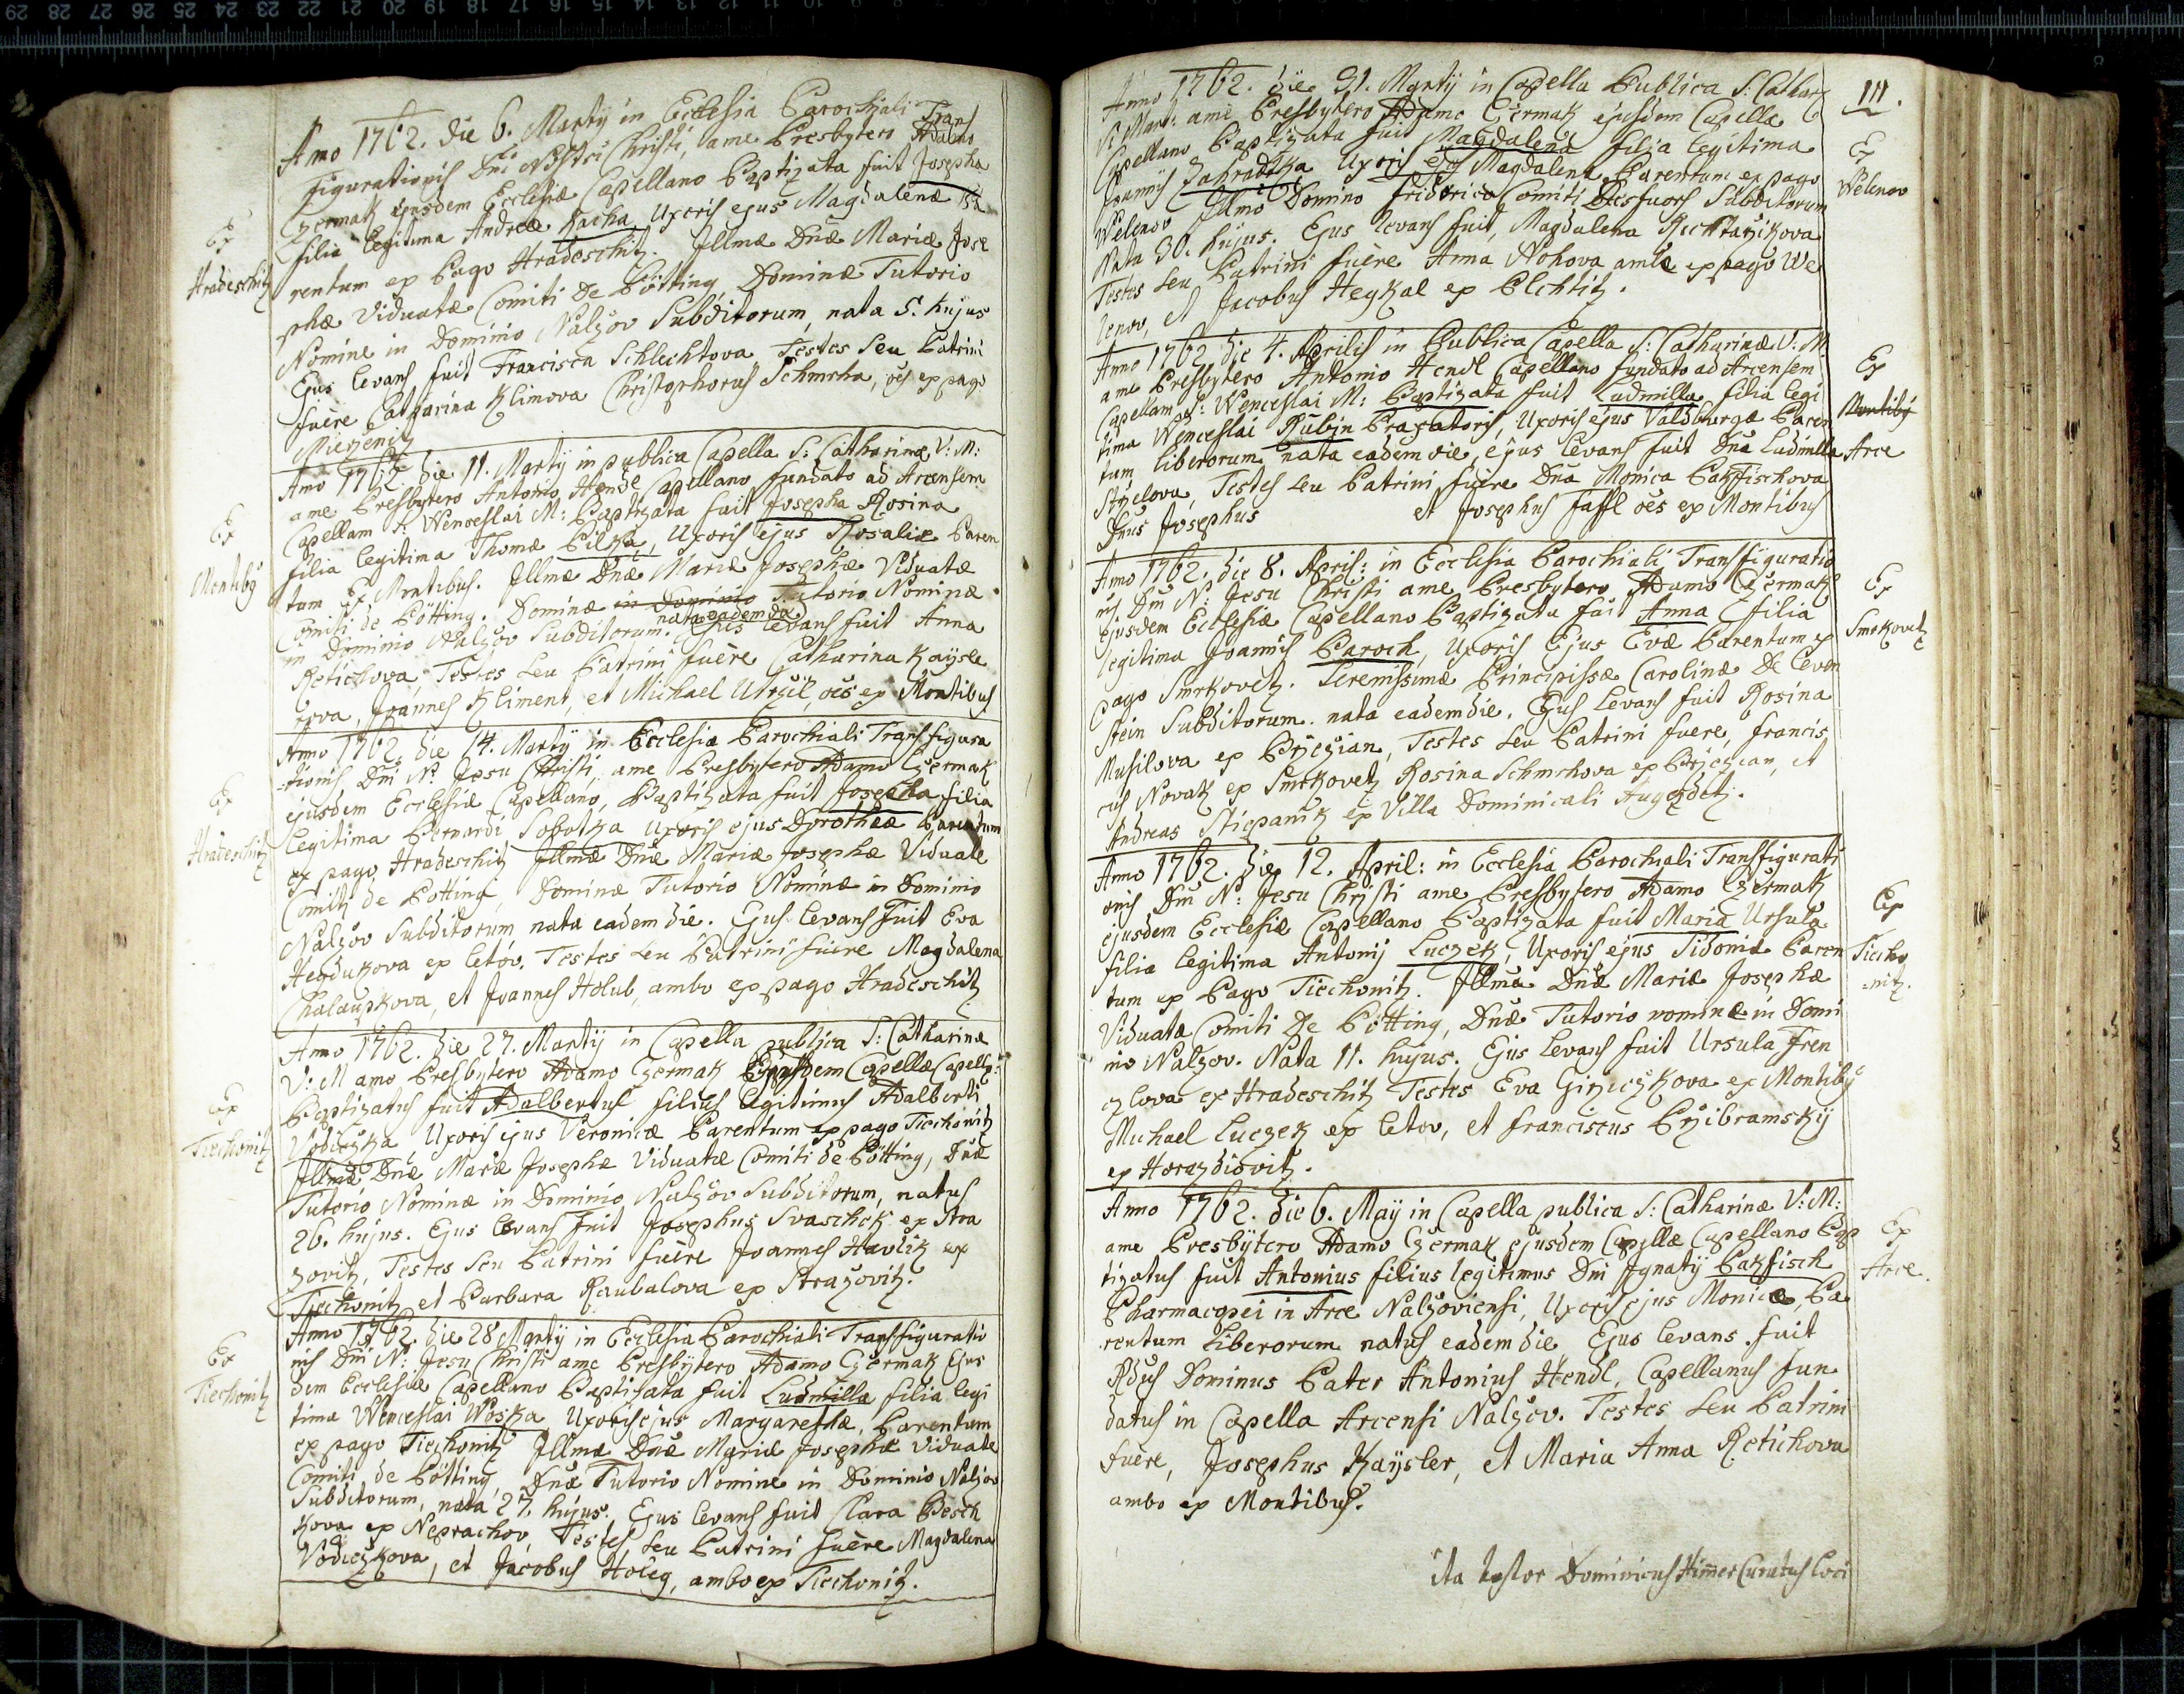 Anno 1762. die 6. Martÿ in Ecclesia Parochiali Trans
figurationis Dni Nostri Christi, a me Presbytero Adamo
Czermak ejusdem Ecclesiæ Capellano Baptizata fuit Josepha
filia legitima Andreæ Kacha Uxoris ejus Magdalenæ Pa
rentum ex Pago Hradeschitz. Illmæ Dnæ Mariæ Jose
phæ Viduatæ Comiti de Pötting Dominæ Tutorio
Nomine in Dominio Nalzov Subditorum, nata 5. hujus
Ejus levans fuit Francisca Schlechtova Testes seu Patrini
fuêre Catharina Klimova Christophorus Schmrha, oês ex pago
Mieczenitz
Ex
Hradeschitz
Anno 1762. die 11. Martÿ in publica Capella S: Catharinæ V: M:
a me Presbytero Antonio Hendl Capellano fundato ad Arcensem
Capellam S: Wenceslai M: Baptizata fuit Josepha Rosina
filia legitima Thomæ Pilka, Uxoris ejus Rosaliæ Paren
tum Ex Montibus. Illmæ Dnæ Mariæ Josephæ Viduatæ
Comiti de Pötting. Dominæ in Dominio Tutorio Nominæ
in Dominio Nalzov Subditorum. nata eadem die Ejus levans fuit Anna
Retichova Testes seu Patrini fuêre Catharina Kaysle
rova, Joannes Kliment, et Michael Utrzil, oês ex Montibus
Ex
Montibq
Anno 1762. die 14. Martÿ in Ecclesia Parochiali Transfigura
tionis Dni N: Jesu Christi, a me Presbytero Adamo Czermak
ejusdem Ecclesiæ Capellano, Baptizata fuit Josepha filia
legitima Bernardi Sobotka Uxoris ejus Dorotheæ Parentum
ex pago Hradeschitz Illmæ Dnæ Mariæ Josephæ Viduatæ
Comiti de Potting, Dominæ Tutorio Nominæ in Dominio
Nalzov Subditorum nata eadem die. Ejus levans fuit Eva
Hendukova ex Letov. Testes seu Patrini fuêre Magdalena
Chalaupkova, et Joannes Holub, ambo ex pago Hradeschitz
Ex
Hradeschitz
Anno 1762. die 27. Martÿ in Capella publica S: Catharinæ
V: M a me Presbytero Adamo Czermak Ejusdem Capellæ Capell:
Baptizatus fuit Adalbertus filius legitimus Adalberti
Vodiczka Uxoris ejus Veronicæ Parentum ex pago Tiechonitz
Illmæ Dnæ Mariæ Josephæ Viduatæ Comiti de Pötting, Dnæ
Tutorio Nominæ in Dominio Nalzov Subditorum, natus
26. hujus. Ejus levans fuit Josephus Svaschek ex Stra
zovitz, Testes seu Patrini fuêre Joannes Havlik ex
Tiechonitz et Barbara Raubalova ex Strazovitz.
Ex
Tiechonitz
Anno 1762. die 28 Martÿ in Ecclesia Parochiali Transfiguratio
nis Dni N: Jesu Christi a me Presbÿtero Adamo Czermak Ejus
dem Ecclesiæ Capellano Baptizata fuit Ludmilla filia legi
tima Wenceslai Woska Uxoris ejus Margarethæ, Parentum
ex pago Tiechonitz Illmæ Dnæ Mariæ Josephæ viduatæ
Comiti de Pötting, Dnæ Tutorio Nomine in Dominio Nalzov
Subditorum, nata 27. hujus. Ejus levans fuit Clara Pesch
kova ex Neprachov, Testes seu Patrini fuêre Magdalena
Vodiczkova, et Jacobus Holeg, ambo ex Tiechonitz.
Ex
Tiechonitz
111.
Anno 1762. die 31. Martÿ in Capella Publica S: Cathar
V: Mart: a me Presbytero Adamo Czermak ejusdem Capellæ
Capellano Baptizata fuit Magdalena filia legitima
Joannis Zahradka Uxoris ejus Magdalenæ Parentum ex pago
Welenov Illmo Domino Friderico Comiti Desfuors Subditorum
Nata 30. hujus. Ejus levans fuit, Magdalena Richtarzikova
Testes seu Patrini fuêre Anna Nohova ambæ ex pago We
lenov, et Jacobus Hegkal ex Elchtitz.
Ex
Welenov
Anno 1762 die 4. Aprilis in Publica Capella S: Catharinæ V: M.
a me Presbytero Antonio Hendl Capellano fundato ad Arcensem
Capellam S: Wenceslai M: Baptizata fuit Ludmilla filia legi
tima Wenceslai Rubin Braxatoris, Uxoris ejus Valdburgæ Paren
tum liberorum nata eadem die, ejus levans fuit Dna Ludmilla
Stržclova, Testes seu Patrini fuêre Dna Monica Pakfischova
Dnus Josephus et Josephus Jaffl oês ex Montibus
Ex
Montibq
Arce
Anno 1762. die 8. April: in Ecclesia Parochiali Transfiguratio
nis Dni N: Jesu Christi a me Presbytero Adamo Czermak
Ejusdem Ecclesiæ Capellano Baptizata fuit Anna filia
legitima Joannis Paroch, Uxoris Ejus Evæ Parentum ex
pago Smrkovetz. Serenissimæ Principissæ Carolinæ De Leven
stein Subditorum. nata eadem die. Ejus levans fuit Rosina
Musilova ex Brzezian, Testes seu Patrini fuere, Francis
cus Novak ex Smrkovetz Rosina Schmrhova ex Brzezian, et
Andreas Stiepanik ex Villa Dominicali Augezdetz.
Ex
Smrkovetz
Anno 1762. die 12. April: in Ecclesia Parochiali Transfigurati
onis Dni N: Jesu Christi a me Presbytero Adamo Czermak
ejusdem Ecclesiæ Capellano Baptizata fuit Maria Ursula
filia legitima Antonij Luczek, Uxoris ejus Sidoniæ Paren
tum ex Pago Tiechonitz. Illmæ Dnæ Mariæ Josephæ
Viduatæ Comiti De Pötting, Dnæ Tutorio nominæ in Domi
nio Nalzov. Nata 11. hujus. Ejus levans fuit Ursula Fren
czlova ex Hradeschitz Testes Eva Girziczkova ex Montibq
Michael Luczek ex Letov, et Franciscus Przibramskÿ
ex Horazdiovitz.
Ex
Tiecho
=nitz.
Anno 1762. die 6. Maÿ in Capella publica S: Catharinæ V: M:
a me Presbÿtero Adamo Czermak ejusdem Capellæ Capellano Bap
tizatus fuit Antonius filius legitimus Dni Ignatÿ Pakfisch
Pharmacopei in Arce Nalzoviensi, Uxoris ejus Monicæ, Pa
rentum Liberorum natus eadem die Ejus levans fuit
Rdus Dominus Pater Antonius Hendl, Capellanus fun
datus in Capella Arcensi Nalzov. Testes seu Patrini
fuêre, Josephus Kaÿsler, et Maria Anna Retichova
ambo ex Montibus.
Ex
Arce.
ita testor Dominicus Himer Curatus Loci